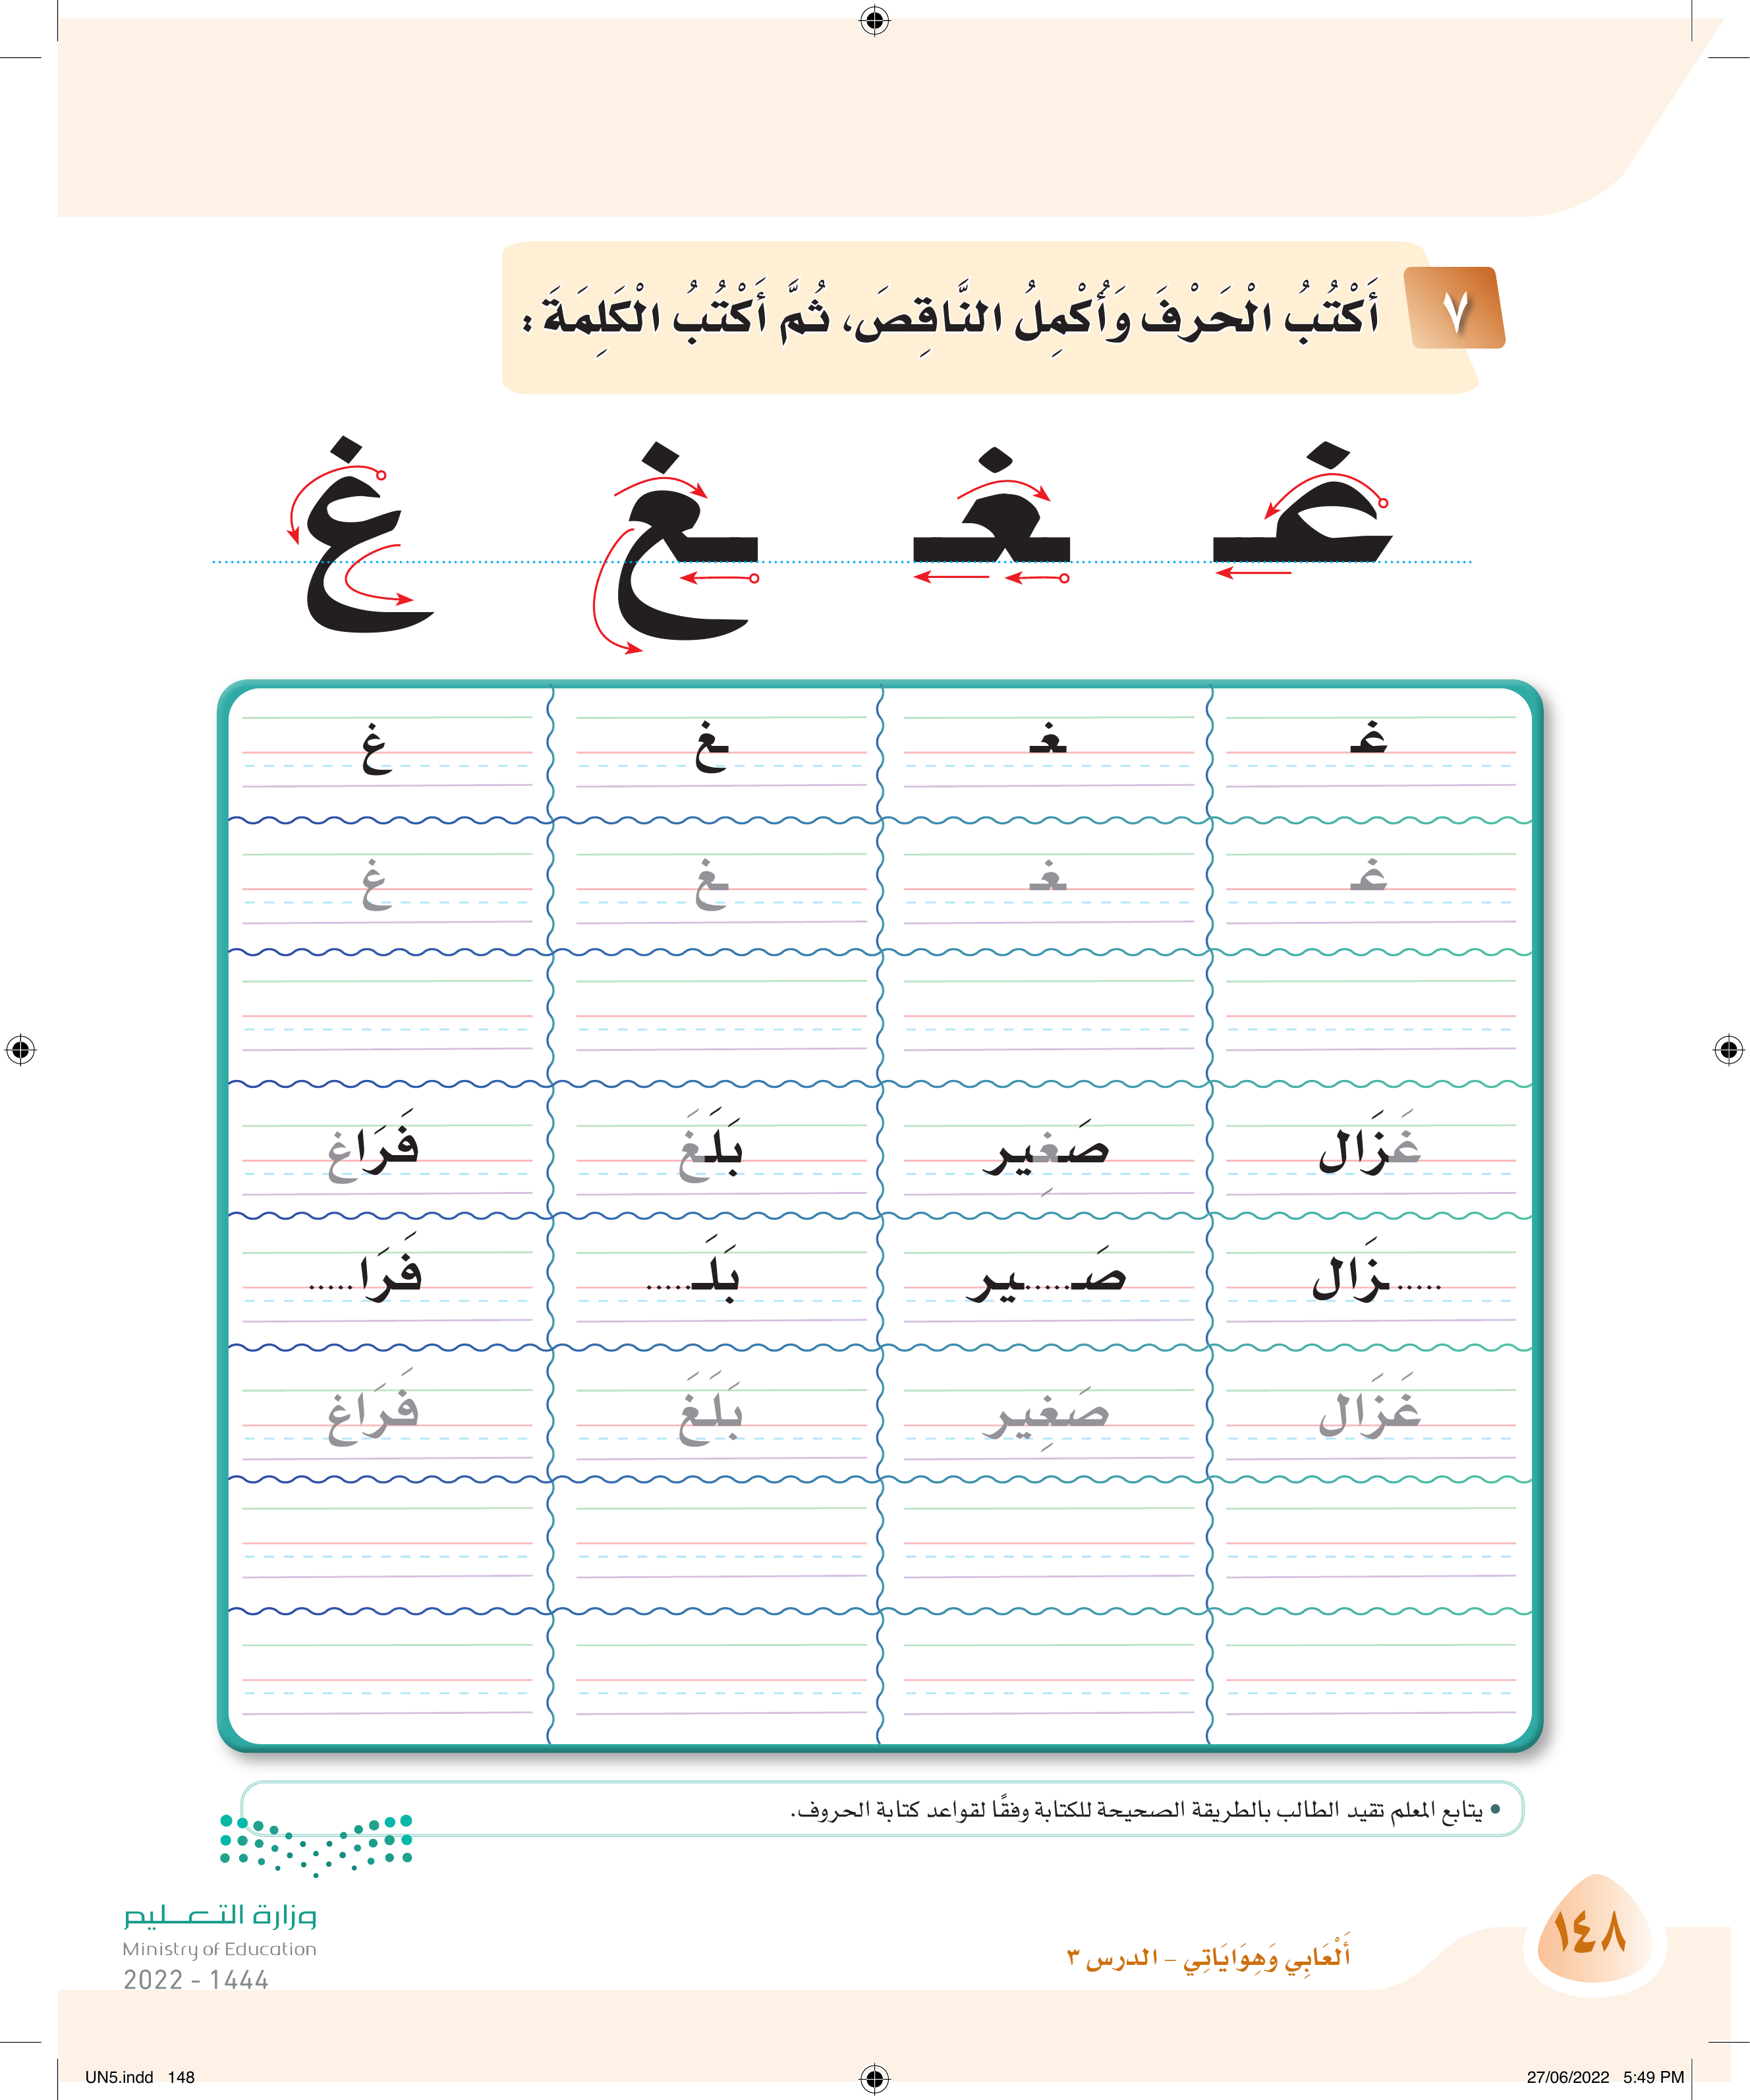 ٧ أَكْتُبُ الْحَرْفَ وَأُكْمِلُ النَّاقِصَ، ثُمَّ أَكْتُبُ الْكَلِمَةَ :
غـ ـغـ ـغ غ
غـ ـغـ ـغ غ
غـ ـغـ ـغ غ
غَزَال صَغِير بَلَغَ فَرَاغ
.....زَال صَـ.....ـير بَلَـ..... فَرَا.....
غَزَال صَغِير بَلَغَ فَرَاغ
• يتابع المعلم تقيد الطالب بالطريقة الصحيحة للكتابة وفقًا لقواعد كتابة الحروف.
وزارة التعليم
Ministry of Education
2022 - 1444
أَلْعَابِي وَهِوَايَاتِي – الدرس ٣
١٤٨
UN5.indd 148
27/06/2022 5:49 PM